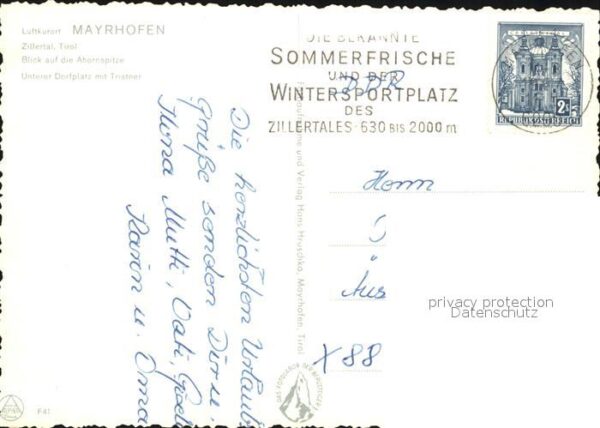 Luftkurort MAYRHOFEN
Zillertal, Tirol
Blick auf die Ahornspitze
Unterer Dorfplatz mit Tristner
DIE BEKANNTE
SOMMERFRISCHE
UND DER
WINTERSPORTPLATZ
DES
ZILLERTALES-630 BIS 2000 m
DDR
2S
REPUBLIK ÖSTERREICH
Die herzlichsten Urlaubs
Grüße senden Dir u.
Ilona Mutti, Vati,
Karin u. Oma
Aufnahme und Verlag Hans Hruschka, Mayrhofen, Tirol
Herrn
Aus
X 88
privacy protection
Datenschutz
F41